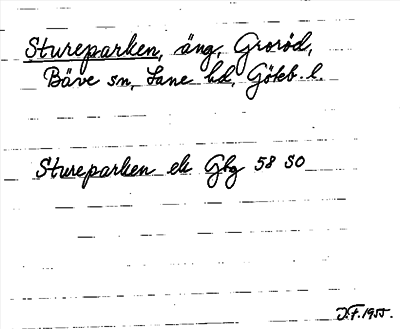 Stureparken, äng, Groröd,
Bäve sn, Lane hd, Göteb. l.
Stureparken ek Gbg 58 SO
J.F. 1955.